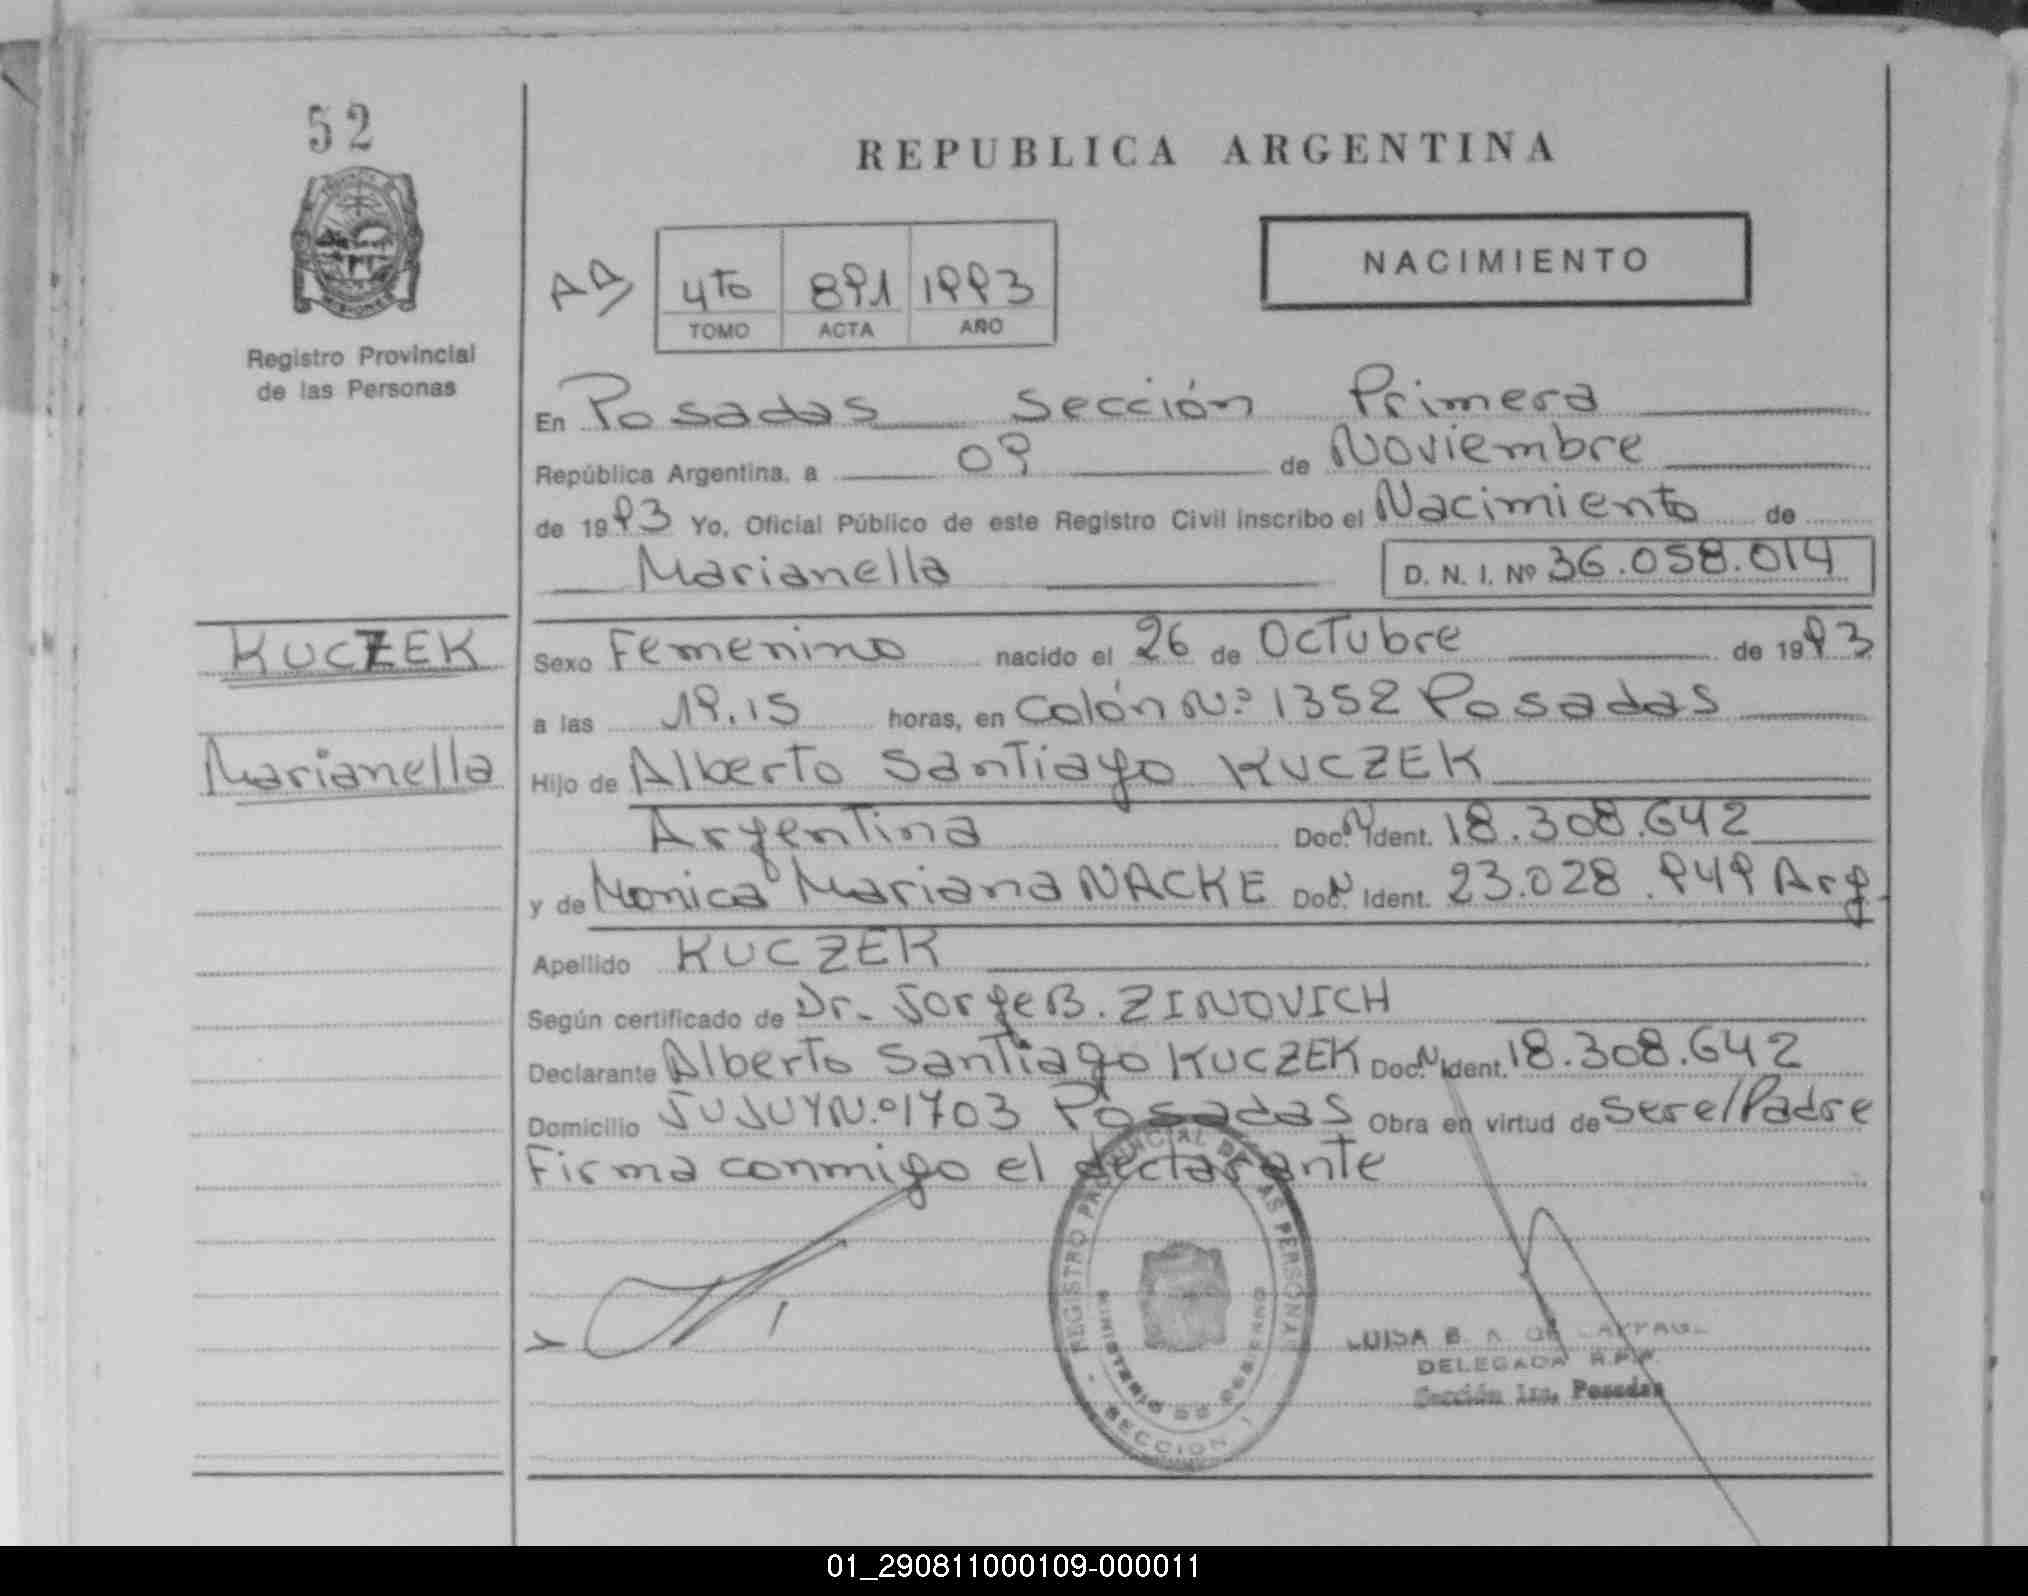 52
REPUBLICA ARGENTINA
NACIMIENTO
4to 891 1993
TOMO ACTA AÑO
Registro Provincial
de las Personas
En Posadas Sección Primera
República Argentina, a 09 de Noviembre
de 1993 Yo, Oficial Público de este Registro Civil inscribo el Nacimiento de
Marianella D. N. I. Nº 36.058.014
KUCZEK
Marianella
Sexo Femenino nacido el 26 de Octubre de 1993
a las 19.15 horas, en Colón N.º 1352 Posadas
Hijo de Alberto Santiago KUCZEK
Argentina Doc. N Ident. 18.308.642
y de Monica Mariana NACKE Doc. N Ident. 23.028.949 Arg.
Apellido KUCZEK
Según certificado de Dr. Jorge B. ZINOVICH
Declarante Alberto Santiago KUCZEK Doc. N Ident. 18.308.642
Domicilio JUJUY N.º 1703 Posadas Obra en virtud de ser el Padre
Firma conmigo el declarante
REGISTRO PROVINCIAL DE LAS PERSONAS
MINISTERIO DE GOBIERNO
SECCION 1
LUISA B. A. DE
DELEGADA R.P.P.
Sección 1ra. Posadas
01_290811000109-000011